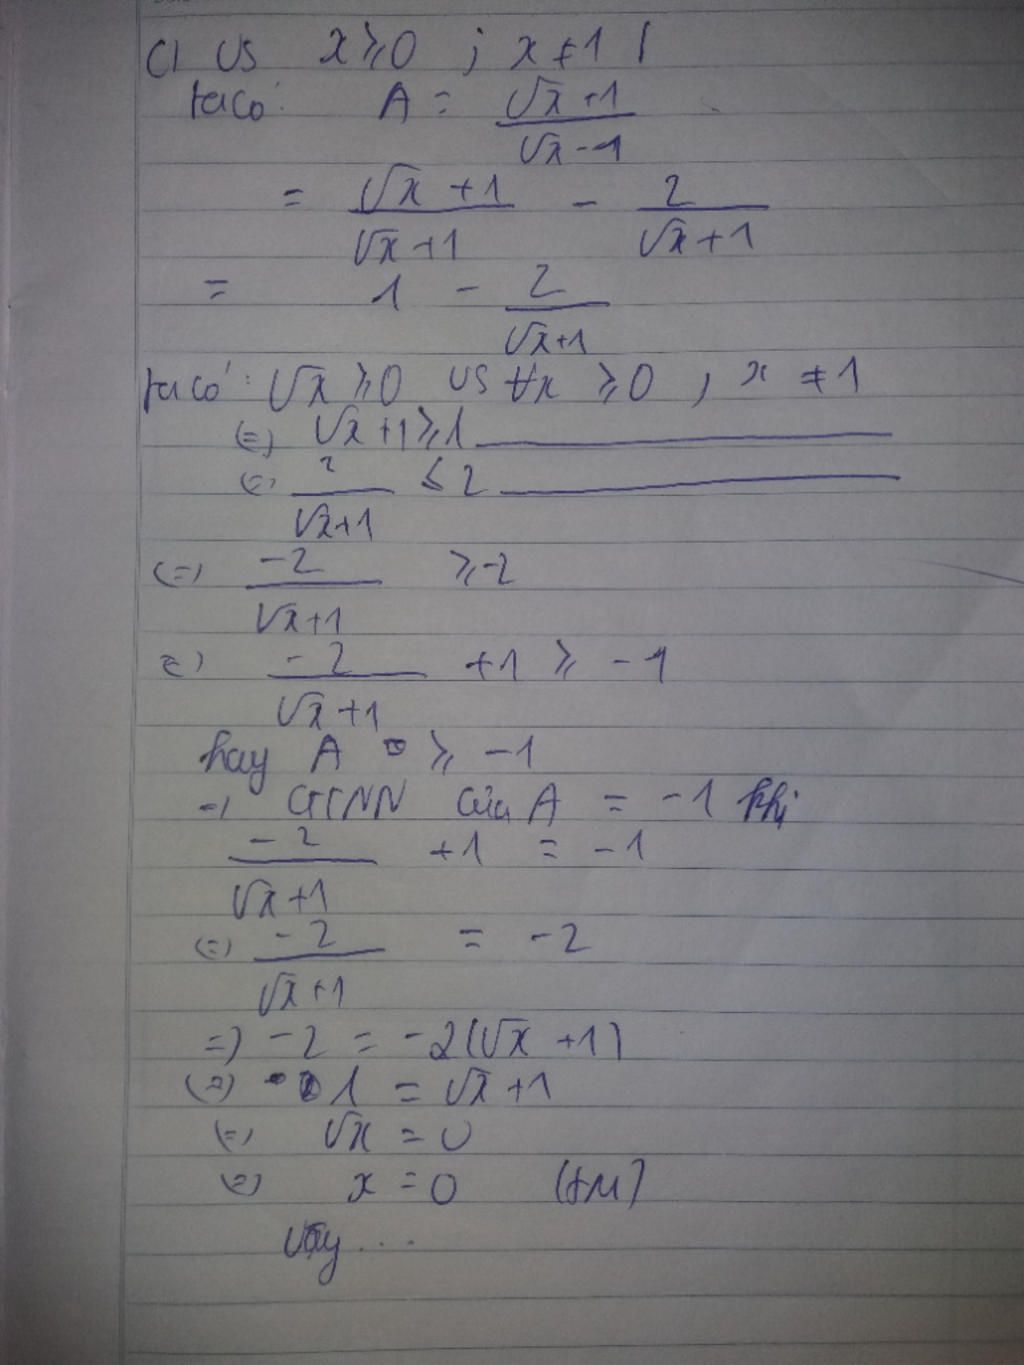 c) vs x ≥ 0 ; x ≠ 1
ta có: A = (√x + 1)/(√x - 1)
= (√x + 1)/(√x + 1) - 2/(√x + 1)
= 1 - 2/(√x+1)
ta có: √x ≥ 0 vs ∀x ≥ 0 , x ≠ 1
(=) √x + 1 ≥ 1
(=) 2/(√x+1) ≤ 2
(=) -2/(√x+1) ≥ -2
(=) -2/(√x+1) +1 ≥ -1
hay A ≥ -1
=) GTNN của A = -1 khi
-2/(√x+1) +1 = -1
(=) -2/(√x+1) = -2
=) -2 = -2(√x +1)
(=) 1 = √x +1
(=) √x = 0
(=) x = 0 (tm)
Vậy ...